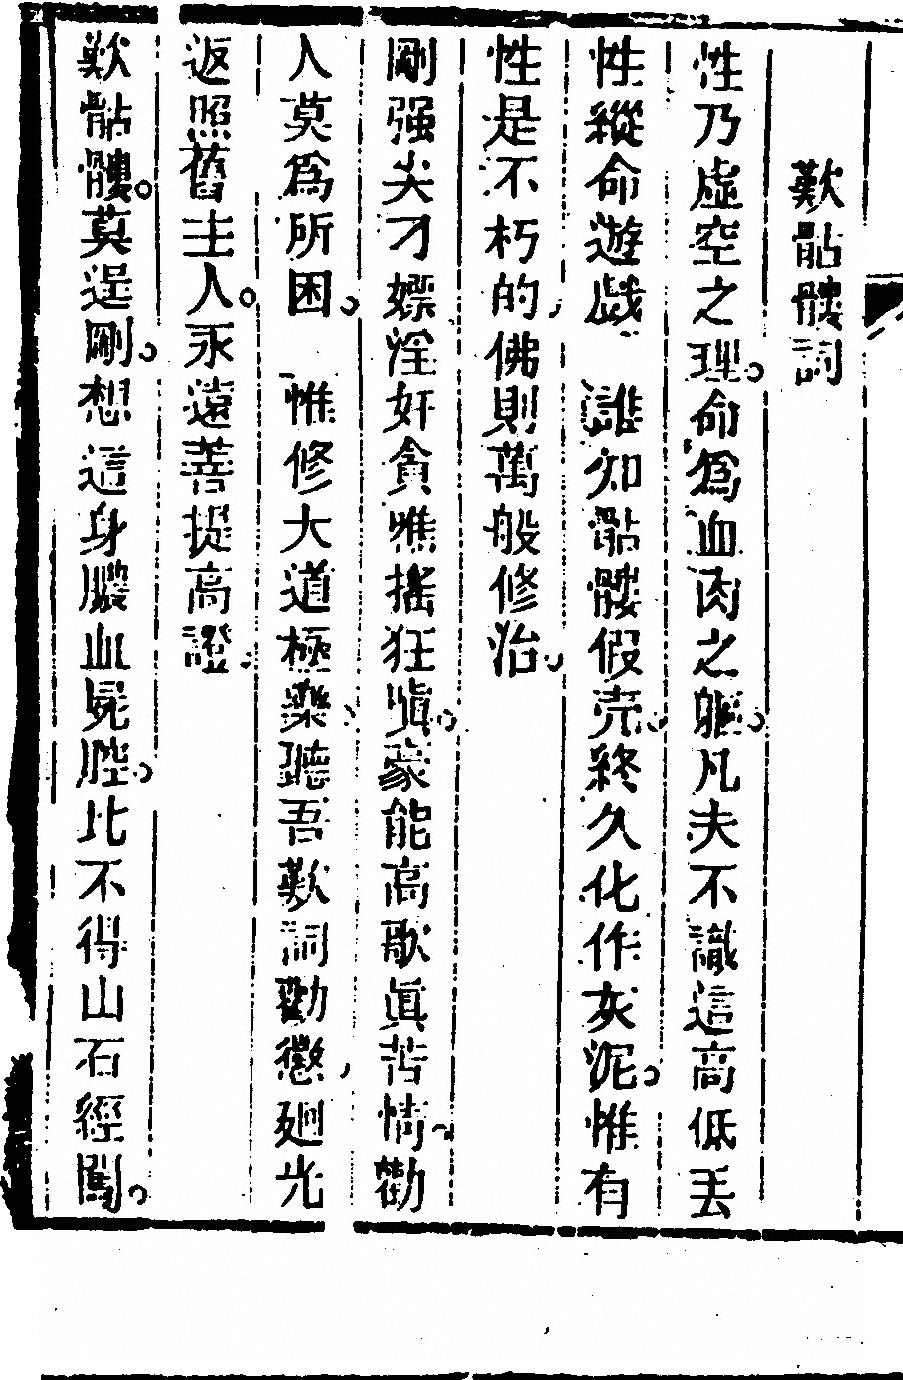 歎骷髏詞
性乃虛空之理。命爲血肉之軀。凡夫不識這高低丟
性縱命遊戲 誰知骷髏假壳。終久化作灰泥。惟有
性是不朽的佛則萬般修治。
剛强尖刁嫖淫奸貪瞧搖狂嗔。豪能高歌眞苦情勸
人莫爲所困。 惟修大道極樂聽吾歎詞勸懲廻光
返照舊主人。永遠菩提高證。
歎骷髏。莫逞剛。想這身膿血屍腔。比不得山石經闖。